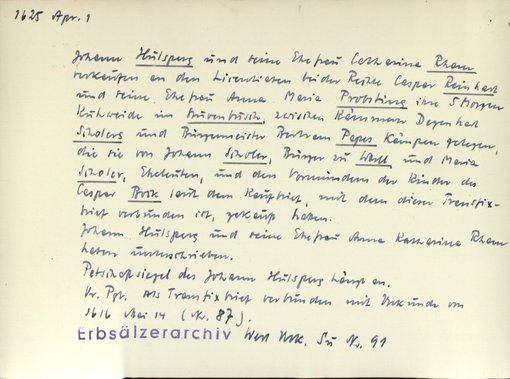 1625 Apr. 1
Johann Hulsperg und seine Ehefrau Catharina Rham
verkaufen an den Lizentiaten beider Rechte Caspar Reinhart
und seine Ehefrau Anna Maria Probsting ihre 5 Morgen
Kuhweide im Bruerbusch, zwischen Kämmerer Degenhart
Scholers und Bürgermeister Bertram Papes Kämpen gelegen,
die sie von Johann Scholer, Bürger zu Werl, und Maria
Scholer, Eheleuten, und den Vormündern der Kinder des
Caspar Brok laut dem Kaufbrief, mit dem dieser Transfix-
brief verbunden ist, gekauft haben.
Johann Hulsperg und seine Ehefrau Anna Katharina Rham
haben unterschrieben.
Petschaftsiegel des Johann Hulsperg hängt an.
Or. Pgt. Als Transfixbrief verbunden mit Urkunde von
1616 Mai 14 (Nr. 87).
Erbsälzerarchiv Werl Urk. Nr. 91